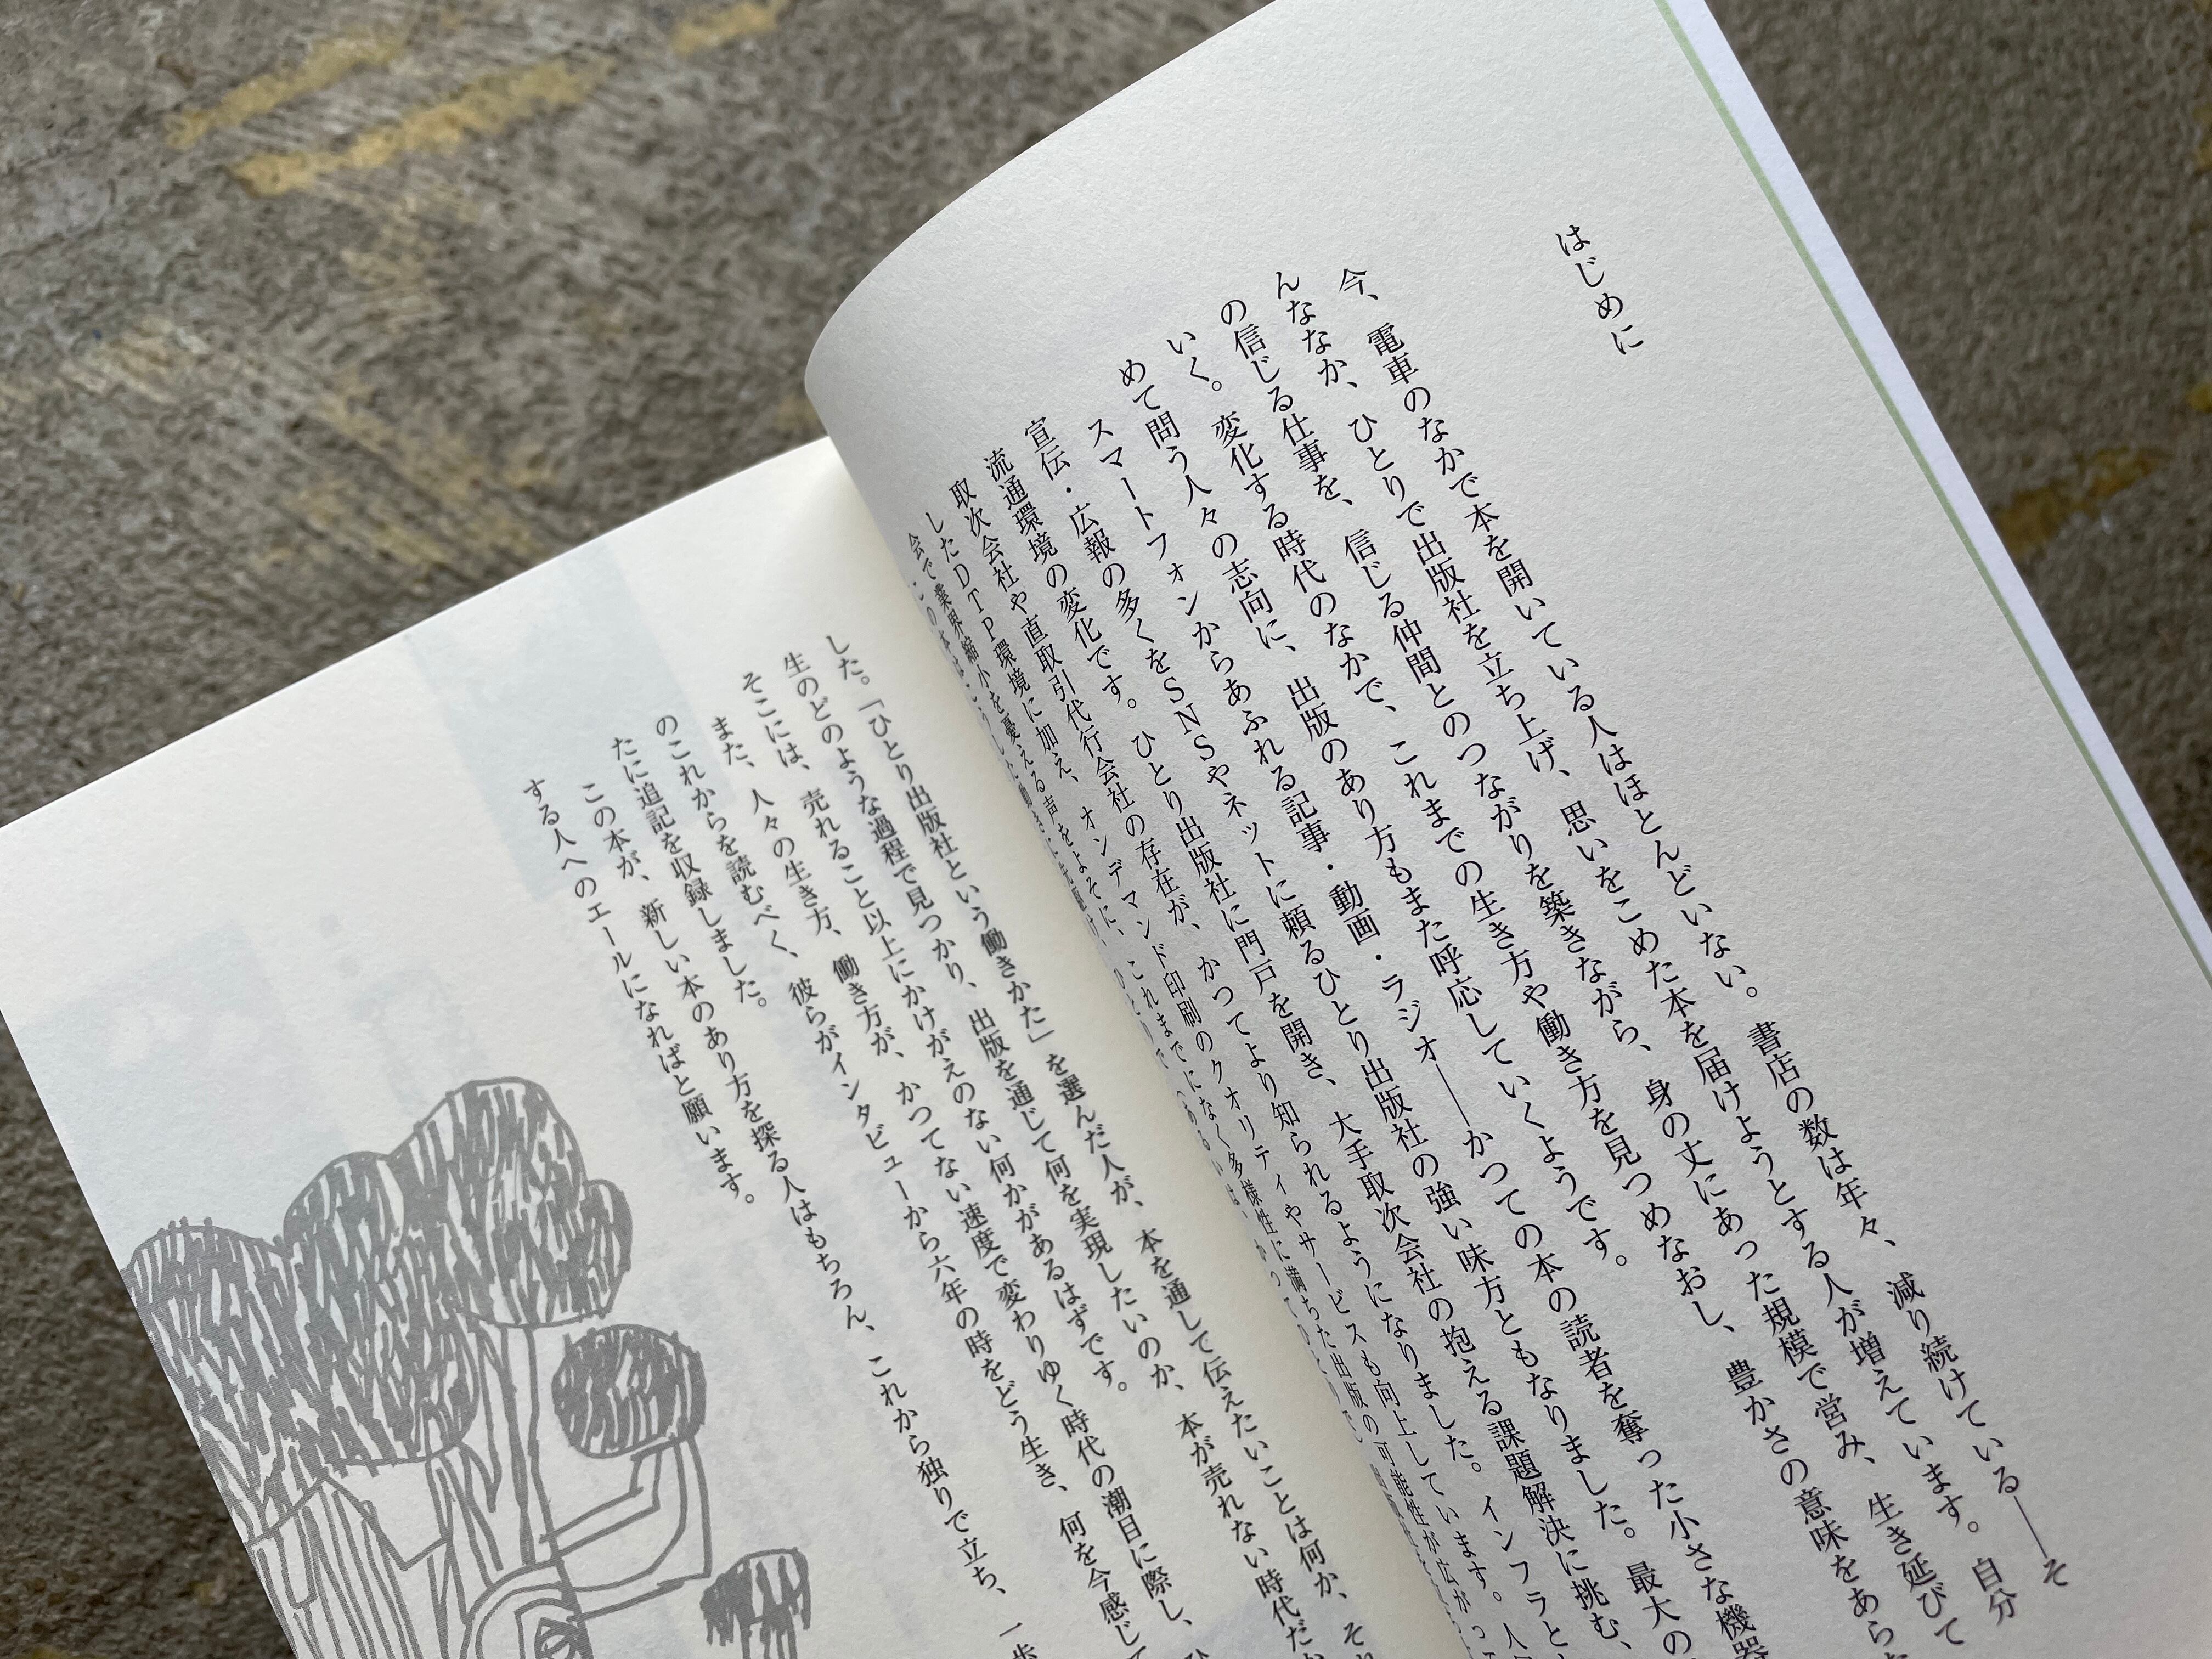 はじめに
今、電車のなかで本を開いている人はほとんどいない。書店の数は年々、減り続けている――そ
んななか、ひとりで出版社を立ち上げ、思いをこめた本を届けようとする人が増えています。自分
の信じる仕事を、信じる仲間とのつながりを築きながら、身の丈にあった規模で営み、生き延びて
いく。変化する時代のなかで、これまでの生き方や働き方を見つめなおし、豊かさの意味をあら
めて問う人々の志向に、出版のあり方もまた呼応していくようです。
スマートフォンからあふれる記事・動画・ラジオ――かつての本の読者を奪った小さな機器
宣伝・広報の多くをSNSやネットに頼るひとり出版社の強い味方ともなりました。最大の
流通環境の変化です。ひとり出版社に門戸を開き、大手取次会社の抱える課題解決に挑む、
取次会社や直取引代行会社の存在が、かつてより知られるようになりました。インフラと
したDTP環境に加え、オンデマンド印刷のクオリティやサービスも向上しています。人
会で業界縮小を憂える声をよそに、これまでになく多様性に満ちた出版の可能性が広がっ
した。「ひとり出版社という働きかた」を選んだ人が、本を通して伝えたいことは何か、それ
生のどのような過程で見つかり、出版を通じて何を実現したいのか、本が売れない時代だか
そこには、売れること以上にかけがえのない何かがあるはずです。
また、人々の生き方、働き方が、かつてない速度で変わりゆく時代の潮目に際し、ひ
のこれからを読むべく、彼らがインタビューから六年の時をどう生き、何を今感じて
たに追記を収録しました。
この本が、新しい本のあり方を探る人はもちろん、これから独りで立ち、一歩
する人へのエールになればと願います。